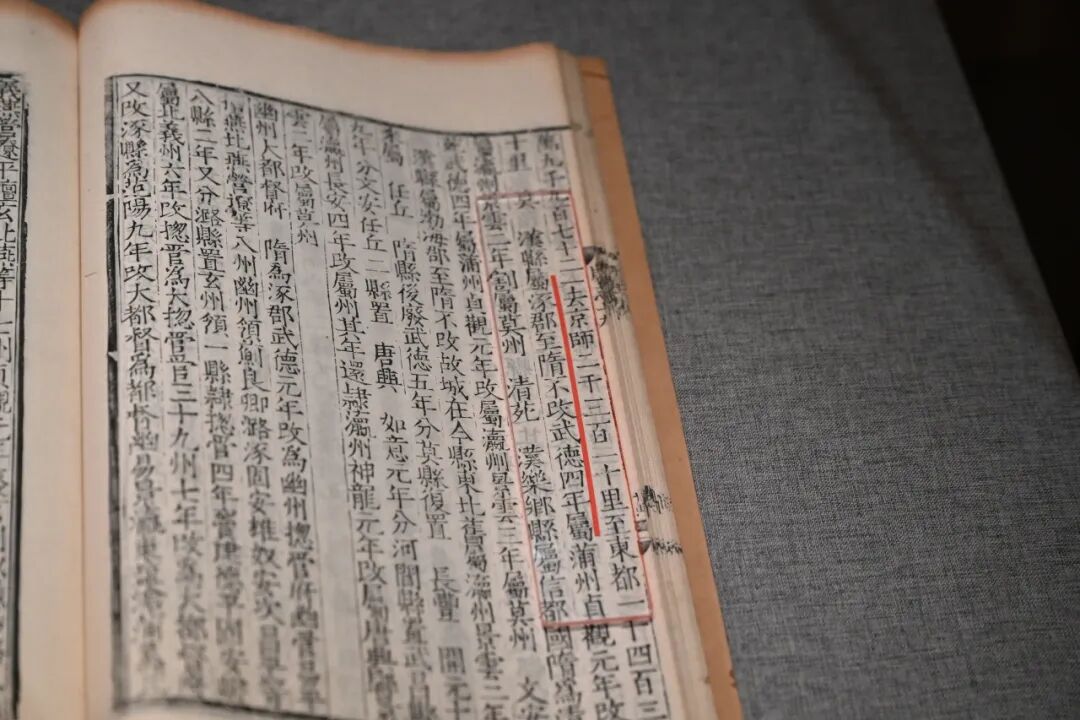 萬九千九百七十二去京師二千三百一十里至東都一千四百三
十里 莫 漢縣屬涿郡至隋不改武德四年屬蒲州貞觀元年改
屬瀛州景雲二年割屬莫州 清苑 漢樂鄉縣屬信都國隋為
武德四年屬蒲州貞觀元年改屬瀛州景雲二年屬莫州 文安
漢縣屬渤海郡至隋不改故城在今縣東北舊屬瀛州景雲二
來屬 任丘 隋縣後廢武德五年分莫縣復置 長豐 開元十
九年分文安任丘二縣置 唐興 如意元年分河間縣置武昌縣
屬瀛州長安四年改屬州其年還隸瀛州神龍元年改屬唐興
雲二年改屬莫州
幽州大都督府 隋為涿郡武德元年改為幽州揔管府管幽易平
檀燕北燕營遼等八州幽州領薊良鄉潞涿固安雍奴安次昌平
八縣二年又分潞縣置玄州領一縣隸揔管四年竇建德平固安縣
屬北義州六年改揔管為大揔管管三十九州七年改為大都督
又改涿縣為范陽九年改大都督為都督幽易景瀛東
義燕營遼平檀玄北燕等十七州貞觀元年